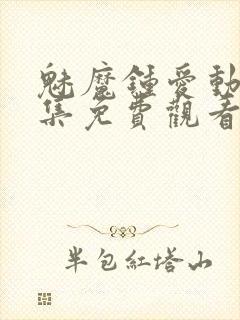 魅魔鍾愛動
集免費觀看
半包紅塔山